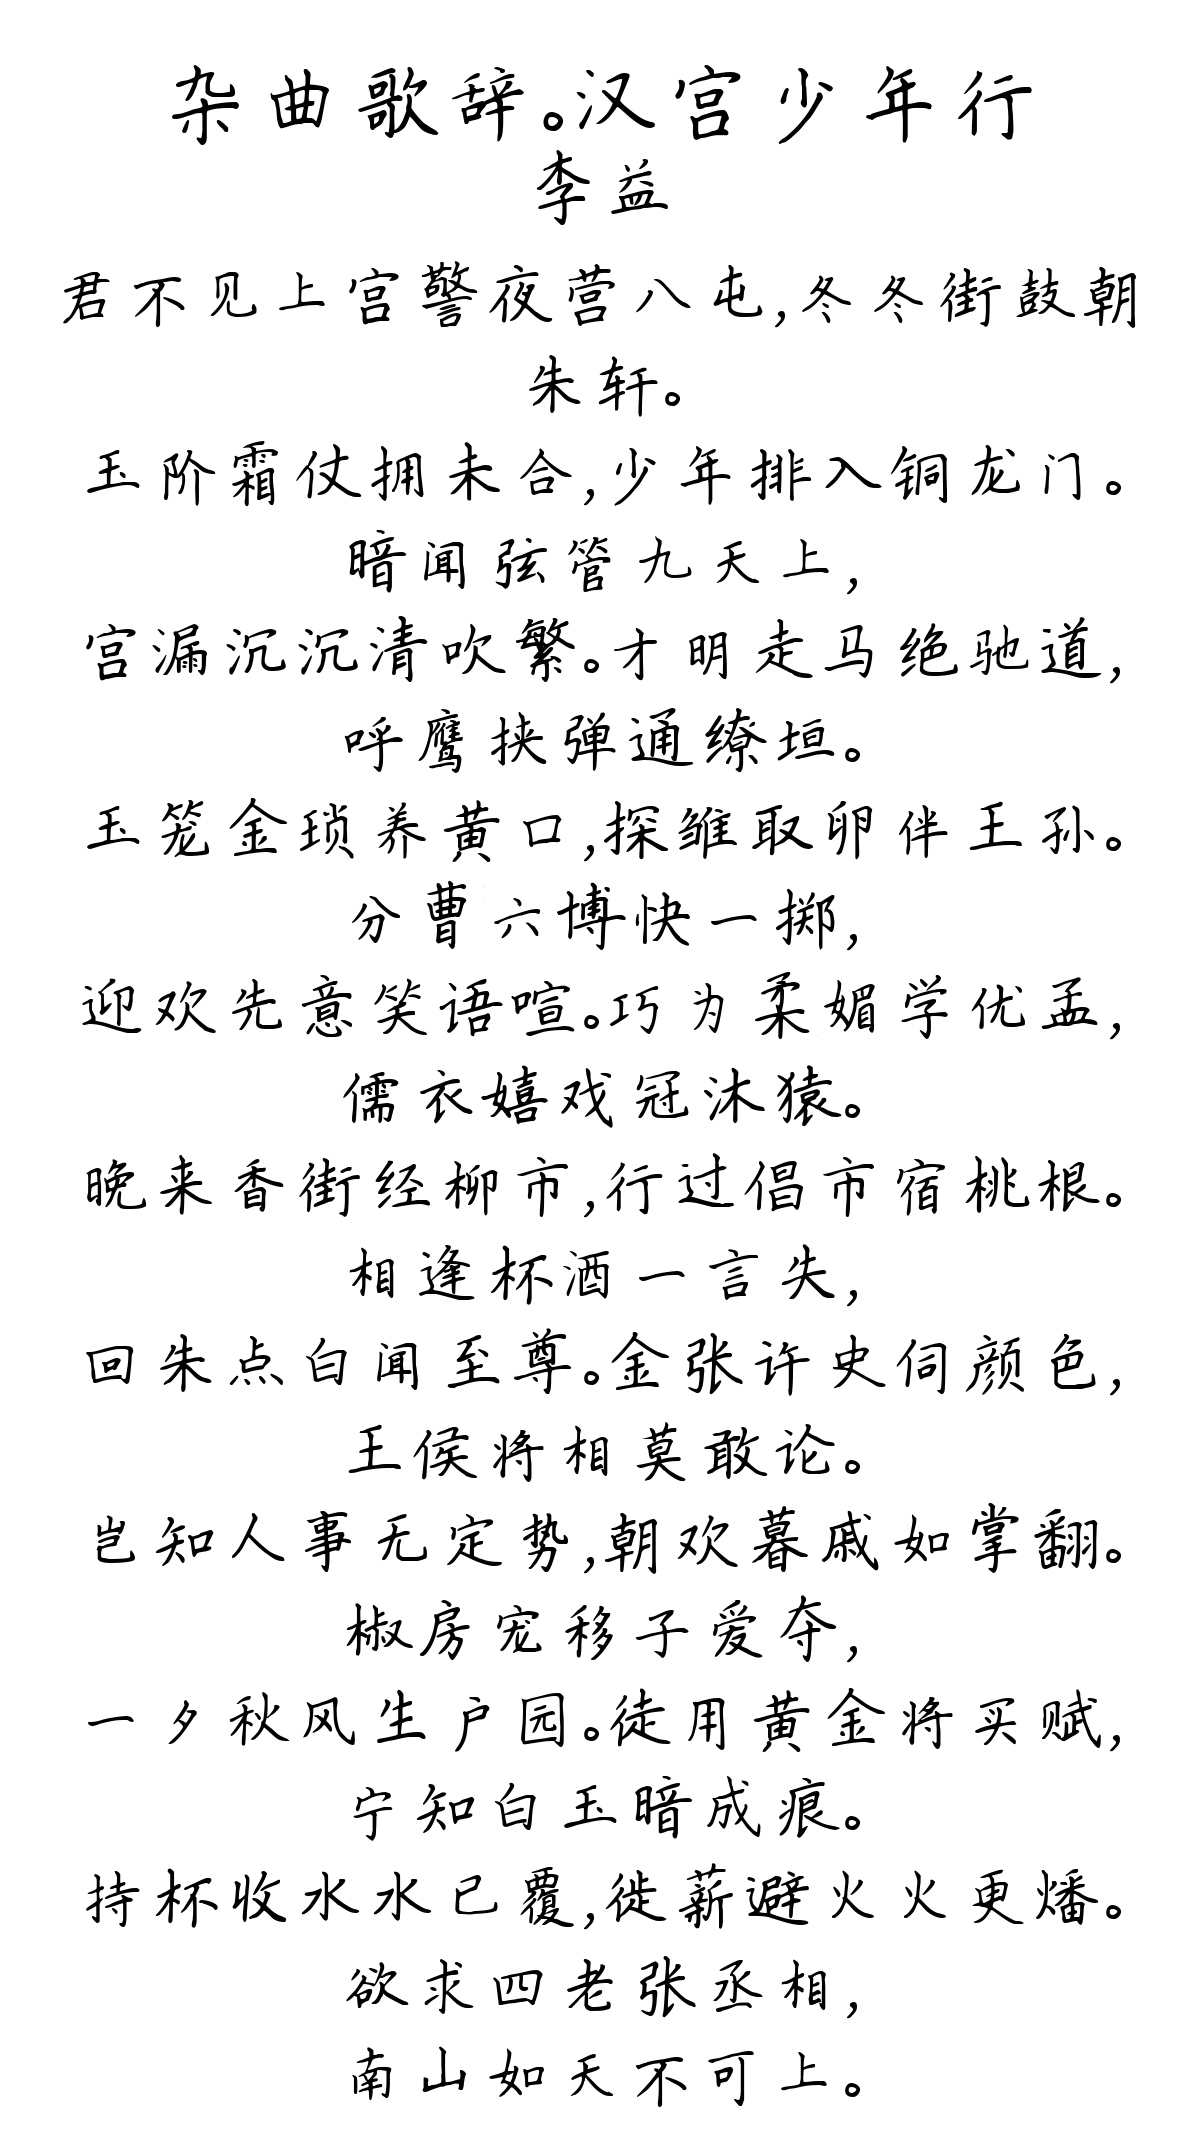 杂曲歌辞。汉宫少年行
李益
君不见上宫警夜营八屯,冬冬街鼓朝
朱轩。
玉阶霜仗拥未合,少年排入铜龙门。
暗闻弦管九天上,
宫漏沉沉清吹繁。才明走马绝驰道,
呼鹰挟弹通缭垣。
玉笼金琐养黄口,探雏取卵伴王孙。
分曹六博快一掷,
迎欢先意笑语喧。巧为柔媚学优孟,
儒衣嬉戏冠沐猿。
晚来香街经柳市,行过倡市宿桃根。
相逢杯酒一言失,
回朱点白闻至尊。金张许史伺颜色,
王侯将相莫敢论。
岂知人事无定势,朝欢暮戚如掌翻。
椒房宠移子爱夺,
一夕秋风生戾园。徒用黄金将买赋,
宁知白玉暗成痕。
持杯收水水已覆,徙薪避火火更燔。
欲求四老张丞相,
南山如天不可上。